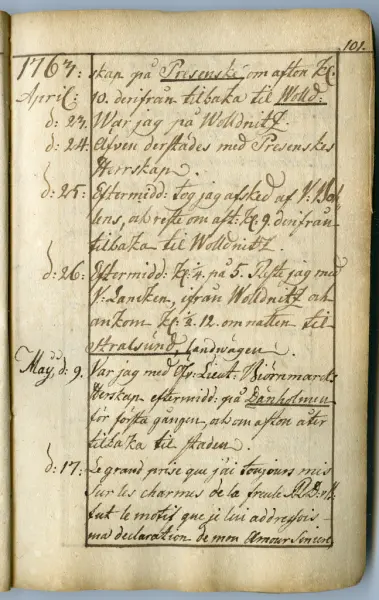 101.
1763. skap på Presenske om afton Kl:
April: 10. derifrån tilbaka til Wolld:
d: 23. War jag på Wolldnitz.
d: 24. Äfven derstädes med Presenskes
Herrskap.
d: 25: Eftermidd: tog jag afsked af V:
lens, och reste om aft: Kl: 9. derifrån
tilbaka til Wolldnitz.
d: 26: Eftermidd: Kl: 4. på 5. Reste jag med
V: Lancken, ifrån Wolldnitz och
ankom Kl: ½ 12. om natten til
Stralsund, landvägen.
May, d: 9. Var jag med Öfv: Lieut: Biörnmarcks
Herskap eftermidd: på Dänholmen
för första gången, och om afton åter
tilbaka til staden.
d: 17: Le grand prise que j'ai toujours mis
sur les charmes de la freule
fut le motif que je lui addressois
ma declaration de mon Amour Sincere